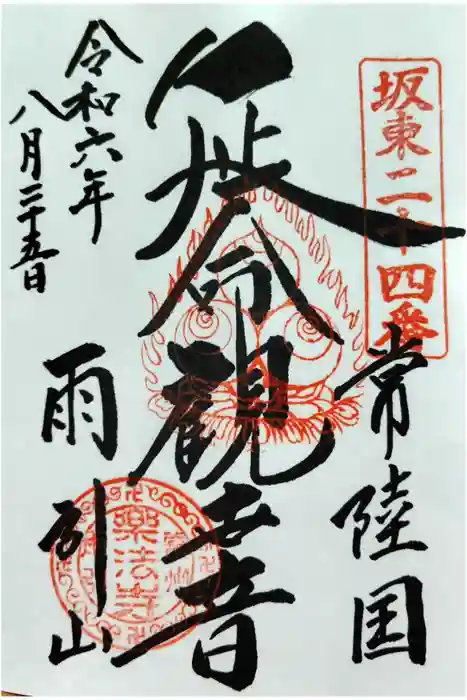 坂東二十四番
常陸国
延命観世音
雨引山
樂法寺
常州
令和六年
八月二十五日